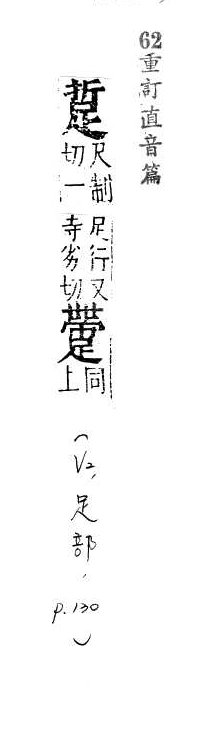 62重訂直音篇
踅尺制切一足行又寺劣切 同上(V2,足部,p.130)